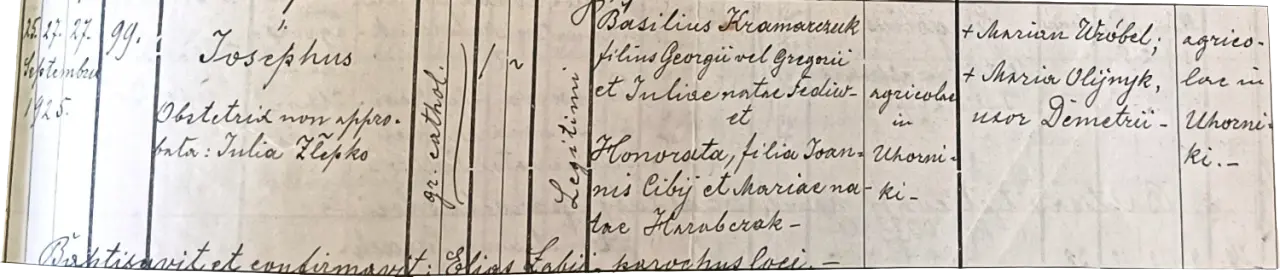 25. 27. 27.
Septembris
1925.
99.
Iosephus
Obstetrix non appro-
bata: Iulia Zlepko
gr. cathol.
Legitimi
Basilius Kramarczuk
filius Georgii vel Gregorii
et Iuliae natae Fediw-
et
Honorata, filia Ioan-
nis Cibij et Mariae na-
tae Harabczak-
agricolae
in
Uhorni-
ki-
+ Marian Wróbel;
+ Maria Olijnyk,
uxor Demetrii-
agrico-
lae in
Uhorni-
ki.-
Baptisavit et confirmavit: Elias parochus loci.-